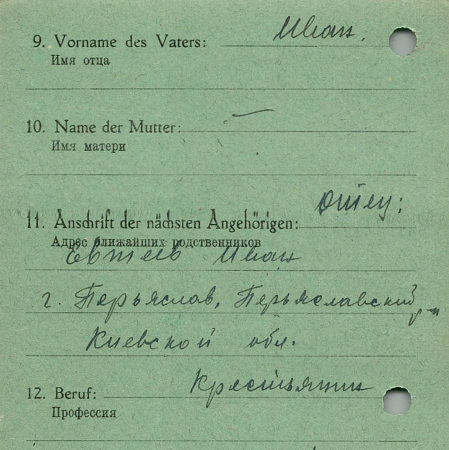 9. Vorname des Vaters: Иван.
Имя отца
10. Name der Mutter: —
Имя матери
11. Anschrift der nächsten Angehörigen: Отец:
Адрес ближайших родственников
Евтеев Иван
г. Перьяслав, Перьяславский р-н
Киевской обл.
12. Beruf: Крестьянин
Профессия